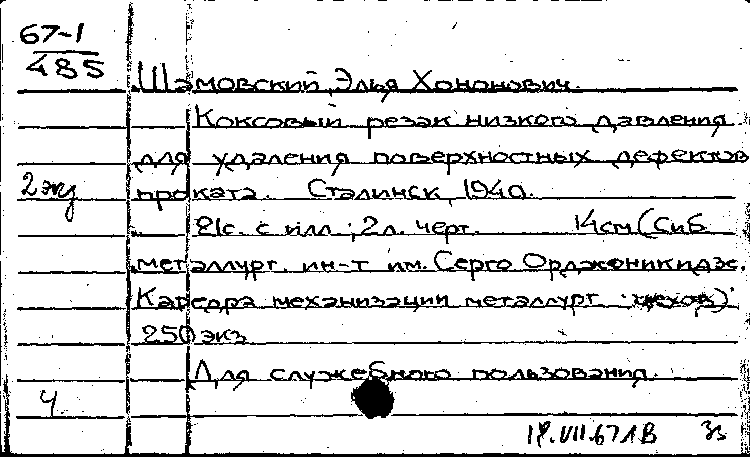 67-1
485
Шамовский, Элья Хононович.
Коксовый резак низкого давления
для удаления поверхностных дефектов
2 экз
проката. Сталинск, 1940.
21с. с илл.; 2л. черт. 14см (Сиб.
металлург. ин-т им. Серго Орджоникидзе.
Кафедра механизации металлург. цехов).
250 экз
Для служебного пользования.
Ч
18.VII.67